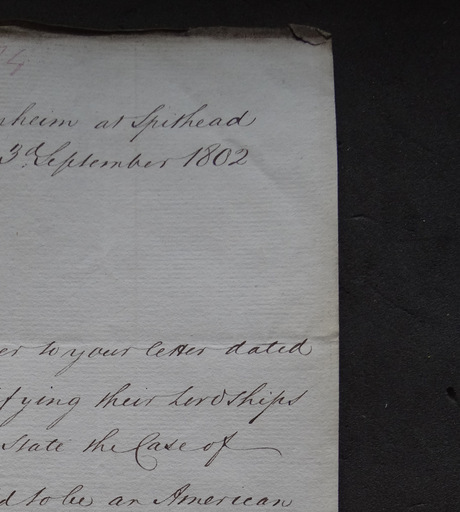 nheim at Spithead
3d. September 1802
er to your letter dated
fying their Lordships
State the Case of
d to be an American